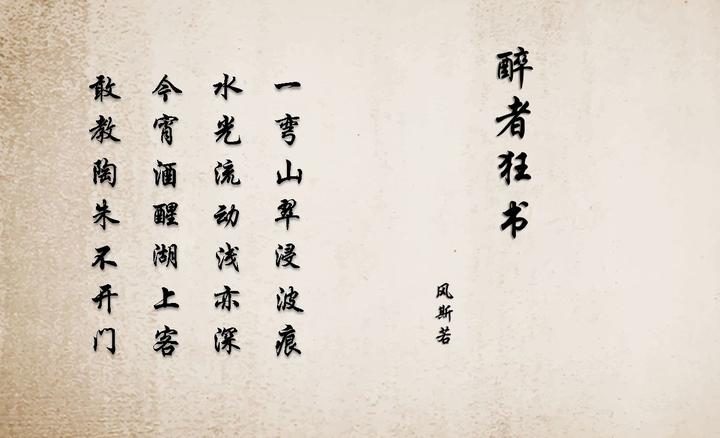 醉者狂书
风斯若
一弯山翠浸波痕
水光流动浅亦深
今宵酒醒湖上客
敢教陶朱不开门